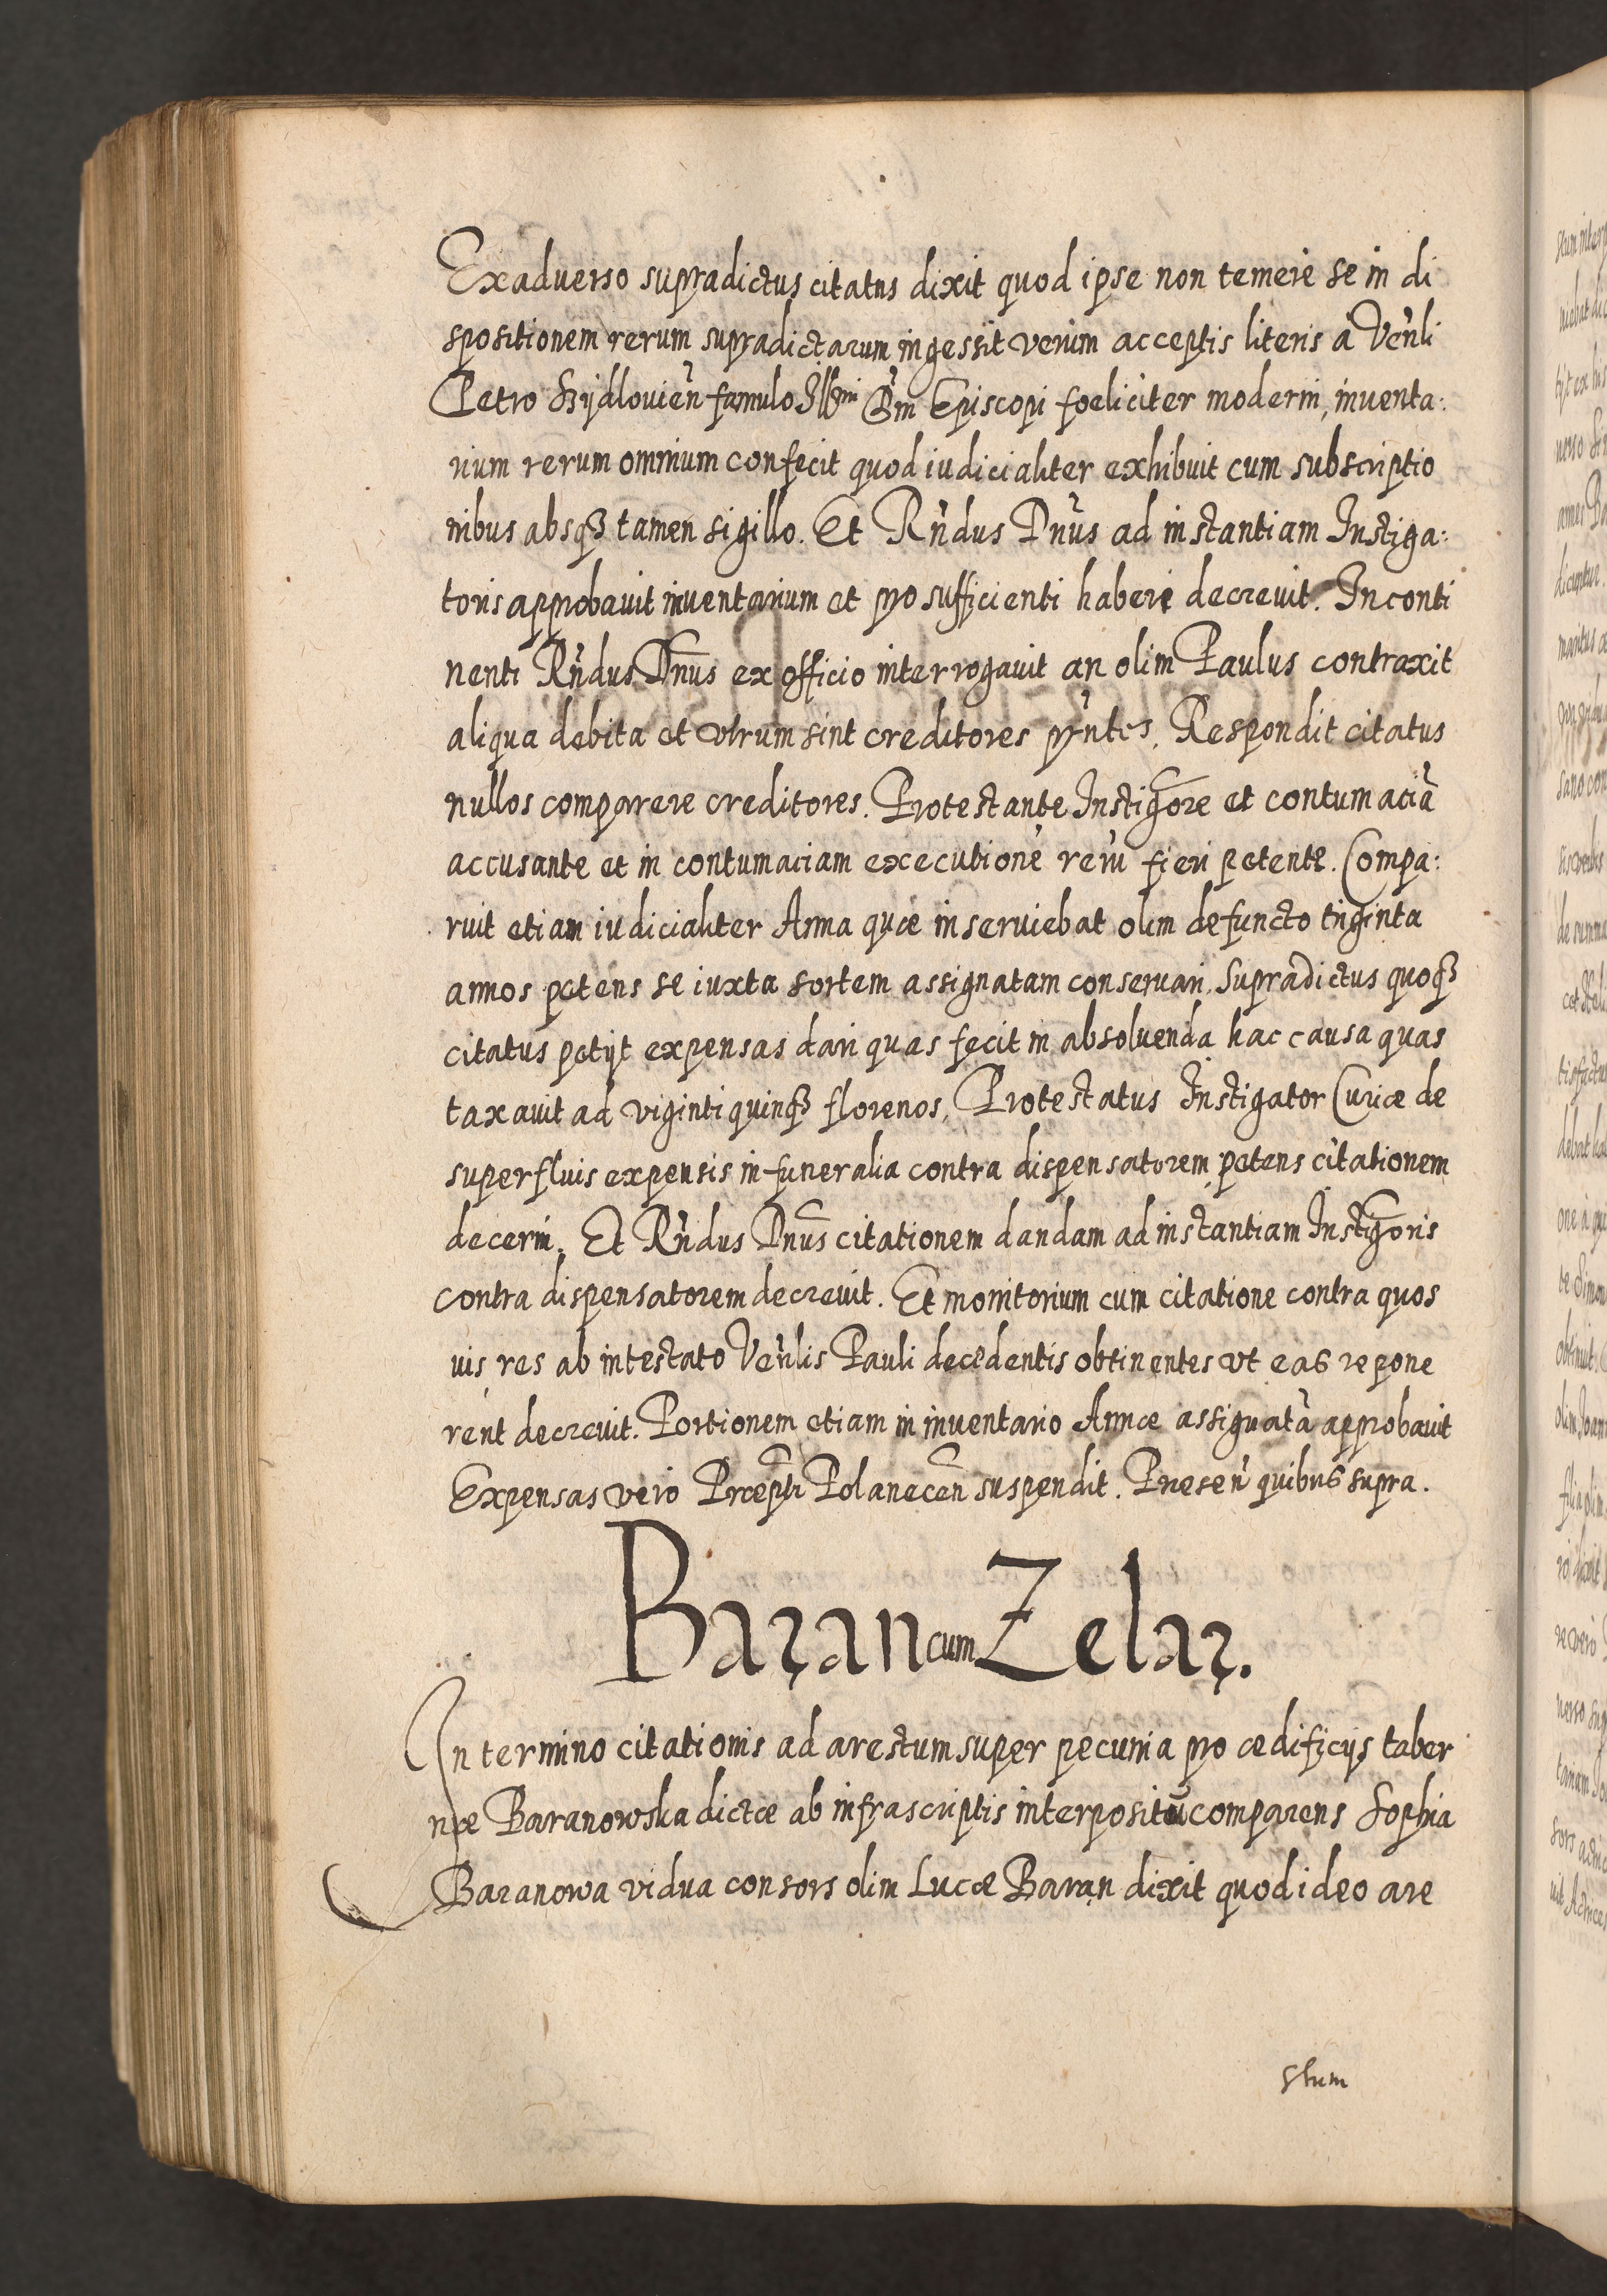 Exaduerso supradictus citatus dixit quod ipse non temere se in di
spositionem rerum supradictarum ingessit verum acceptis literis a Venli
Petro Szydlouien famulo Illmi Dni Episcopi foeliciter moderni, inventa:
rium rerum omnium confecit quod iudicialiter exhibuit cum subscriptio
nibus absq₃ tamen sigillo. Et Rndus Dnus ad instantiam Instiga:
toris approbauit inventarium et pro sufficienti habere decrevit. Inconti
nenti Rndus Dnus ex officio interrogauit an olim Paulus contraxit
aliqua debita et vtrum sint creditores prntes. Respondit citatus
nullos comparere creditores. Protestante Instigore et contumaciã
accusante et in contumaciam executionẽ rerũ fieri petente. Compa:
ruit etiam iudicialiter Anna quæ inseruiebat olim defuncto triginta
annos petens se iuxta sortem assignatam conseruari. Supradictus quoq₃
citatus petijt expensas dari quas fecit in absoluenda hac causa quas
taxauit ad viginti quinq₃ florenos. Protestatus Instigator Curiæ de
superfluis expensis in funeralia contra dispensatorem petens citationem
decerni. Et Rndus Dnus citationem dandam ad instantiam Instigoris
contra dispensatorem decrevit. Et monitorium cum citatione contra quos
uis res ab intestato Venlis Pauli decedentis obtinentes vt eas repone
rent decrevit. Portionem etiam in inventario Annæ assignatã approbauit
Expensas vero Præpti Polanecen suspendit. Presen quibus supra.
Baran cum Zelar.
In termino citationis ad arestum super pecunia pro ædificijs taber
næ Baranowska dictæ ab infrascriptis interpositũ comparens Sophia
Baranowa vidua consors olim Lucæ Baran dixit quod ideo are
stum